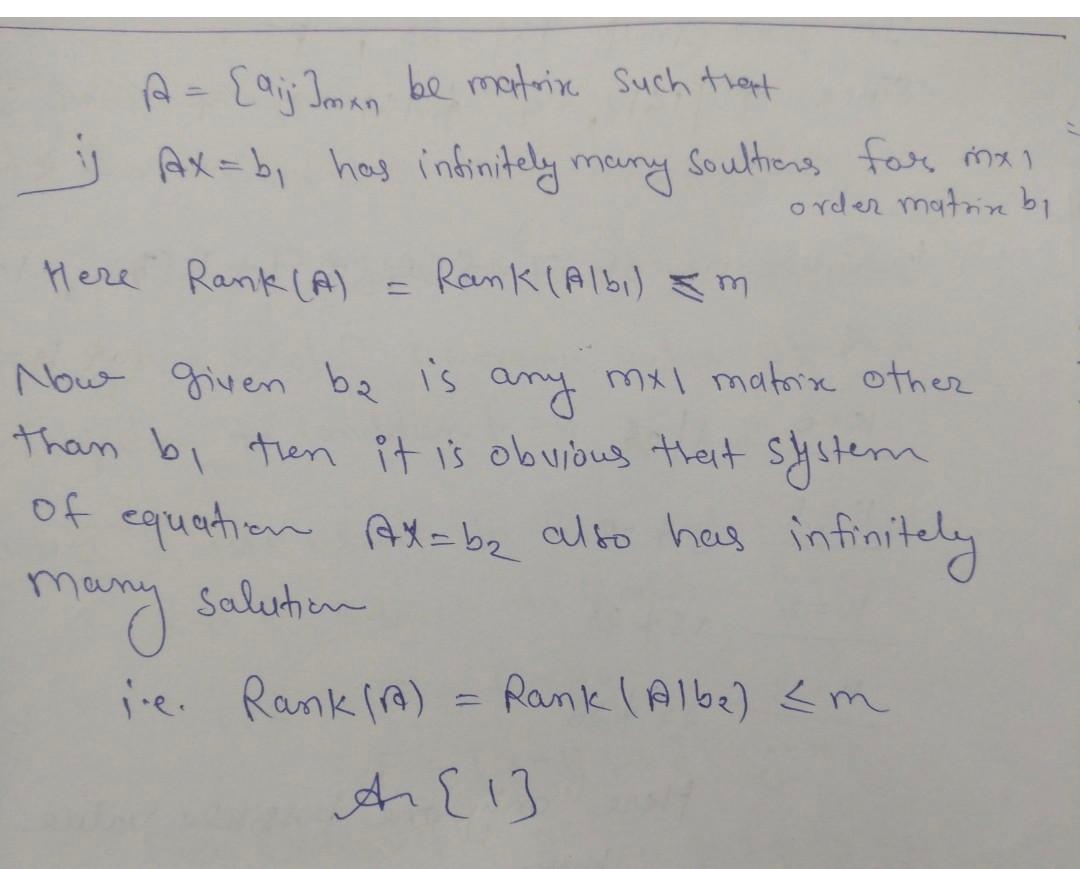 A = [aij]m×n be matrix such that
i) AX = b1 has infinitely many soultions for m×1
order matrix b1
Here Rank(A) = Rank(A|b1) ≤ m
Now given b2 is any m×1 matrix other
than b1 then it is obvious that system
of equation AX=b2 also has infinitely
many salution
i.e. Rank(A) = Rank(A|b2) ≤ m
An {1}